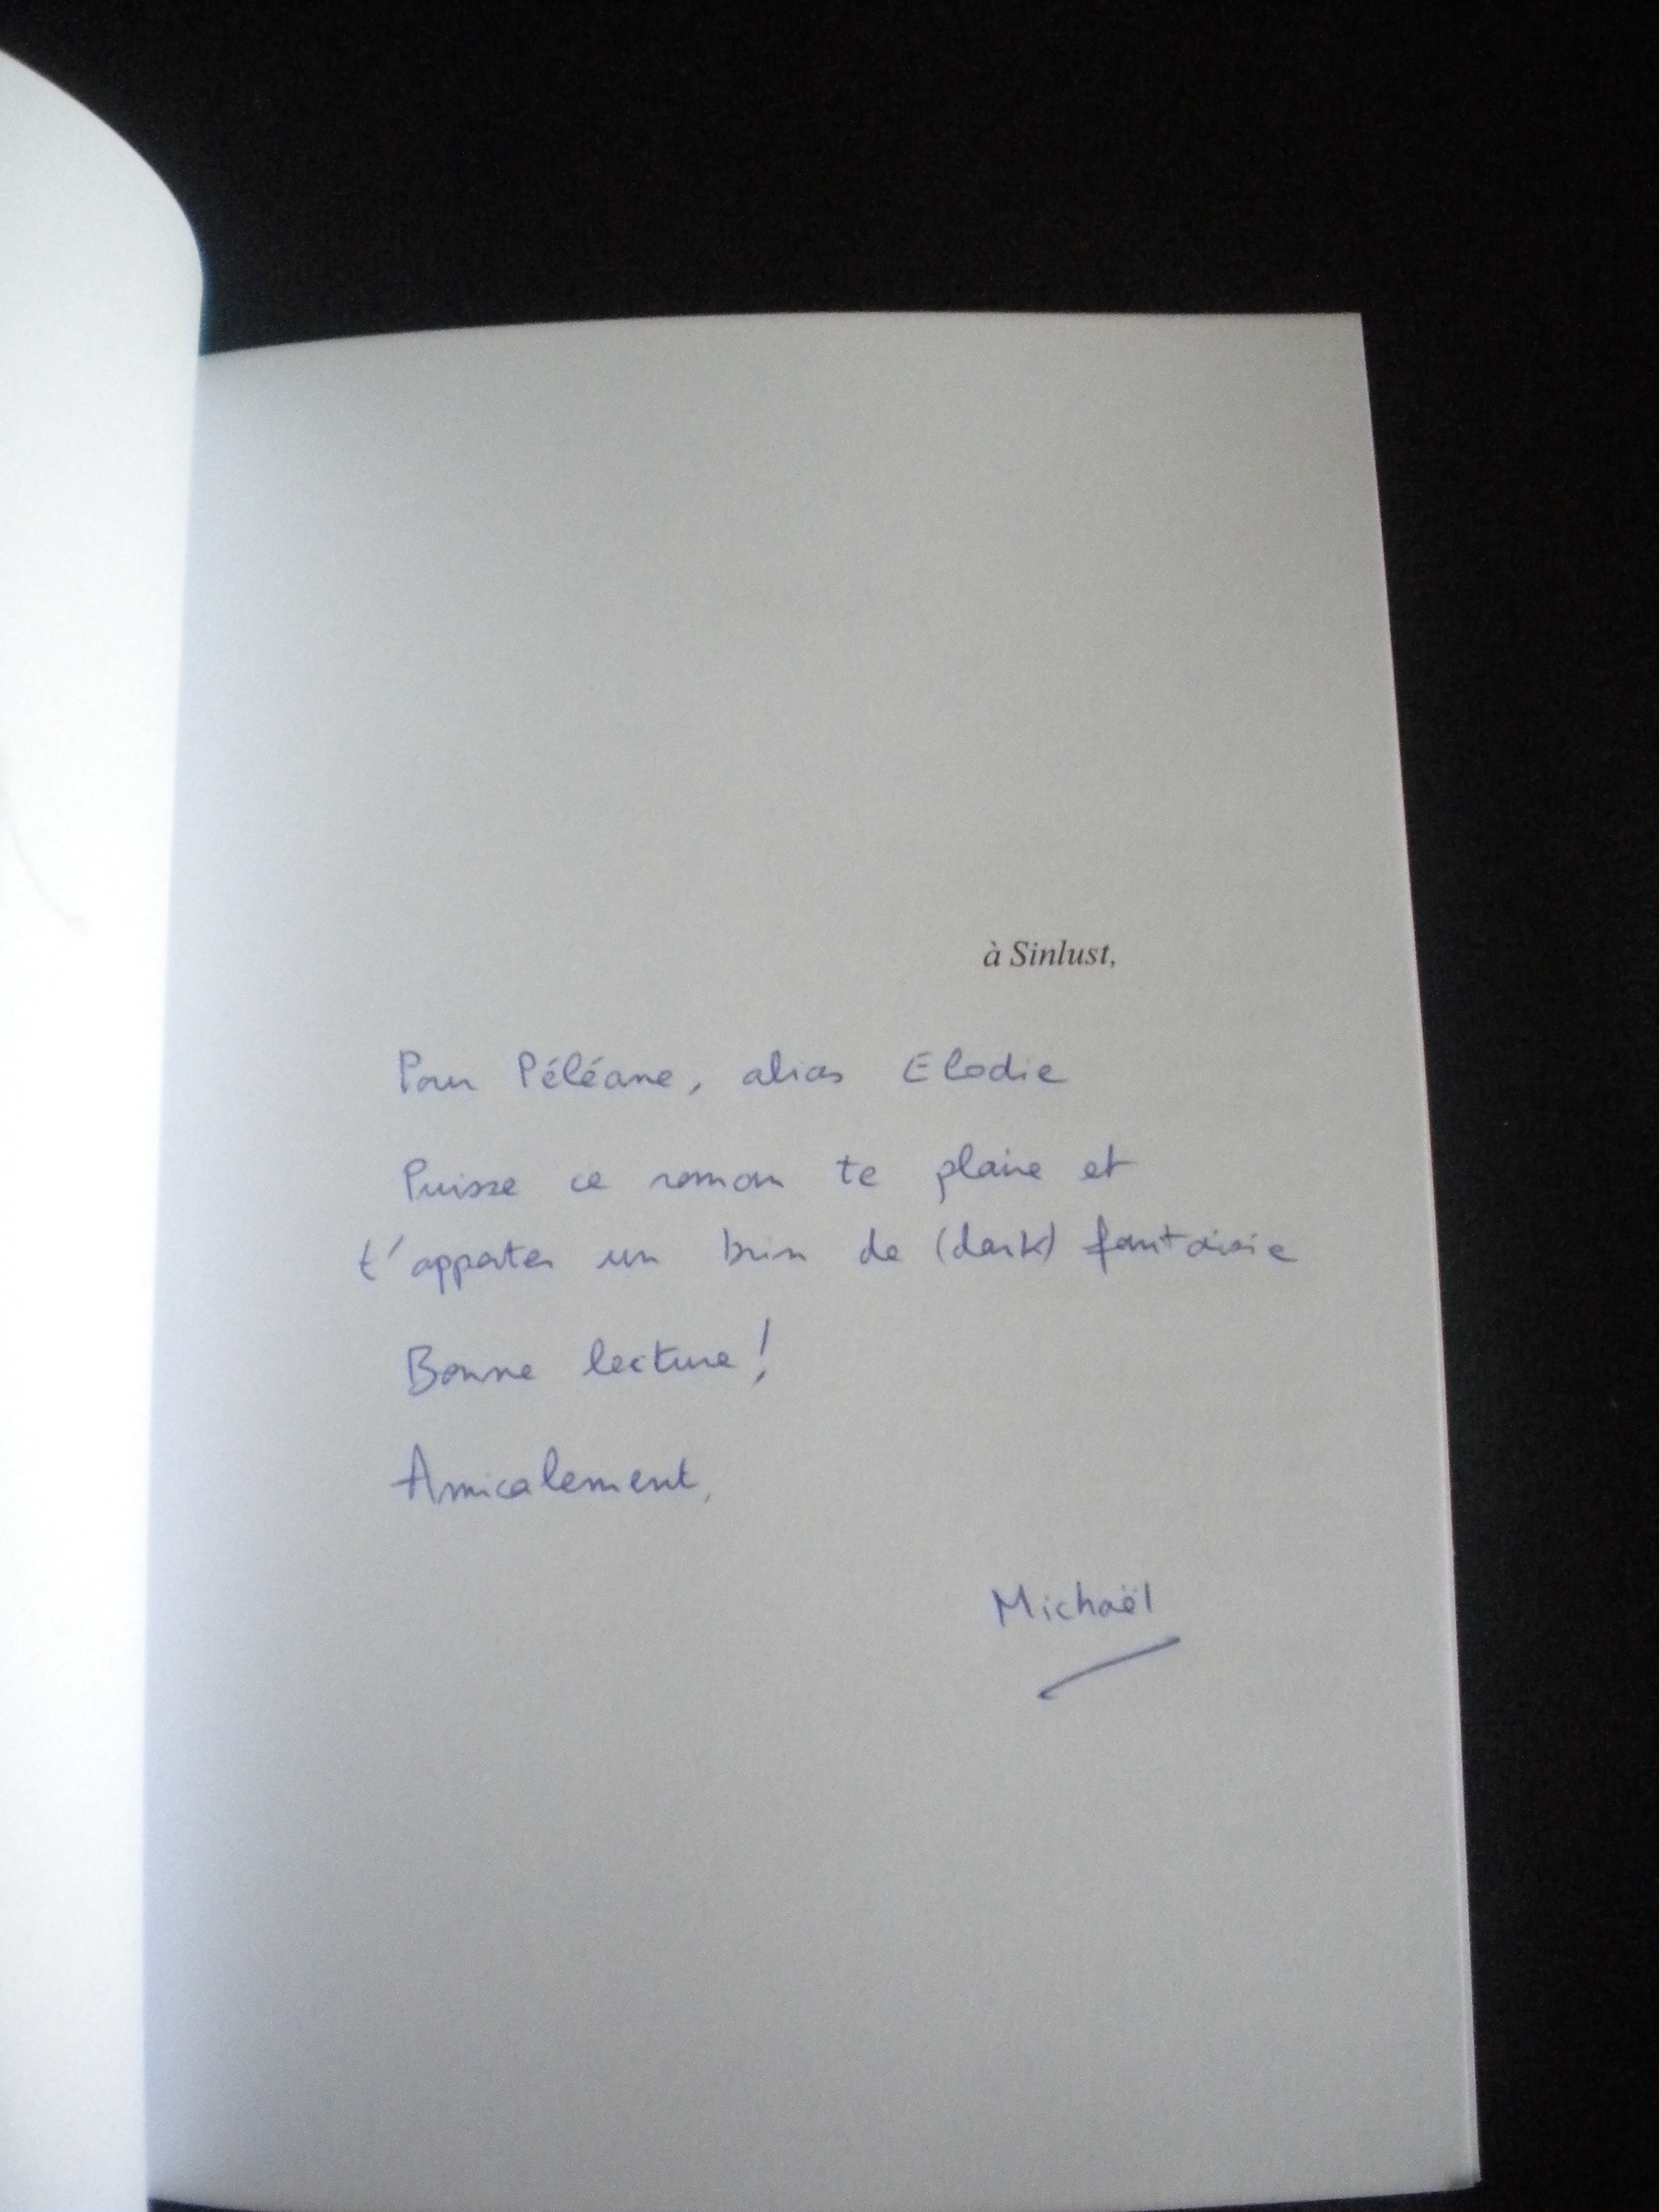 à Sinlust,
Pour Péléane, alias Elodie
Puisse ce roman te plaire et
t'apporter un brin de (dark) fantaisie
Bonne lecture !
Amicalement,
Michaël